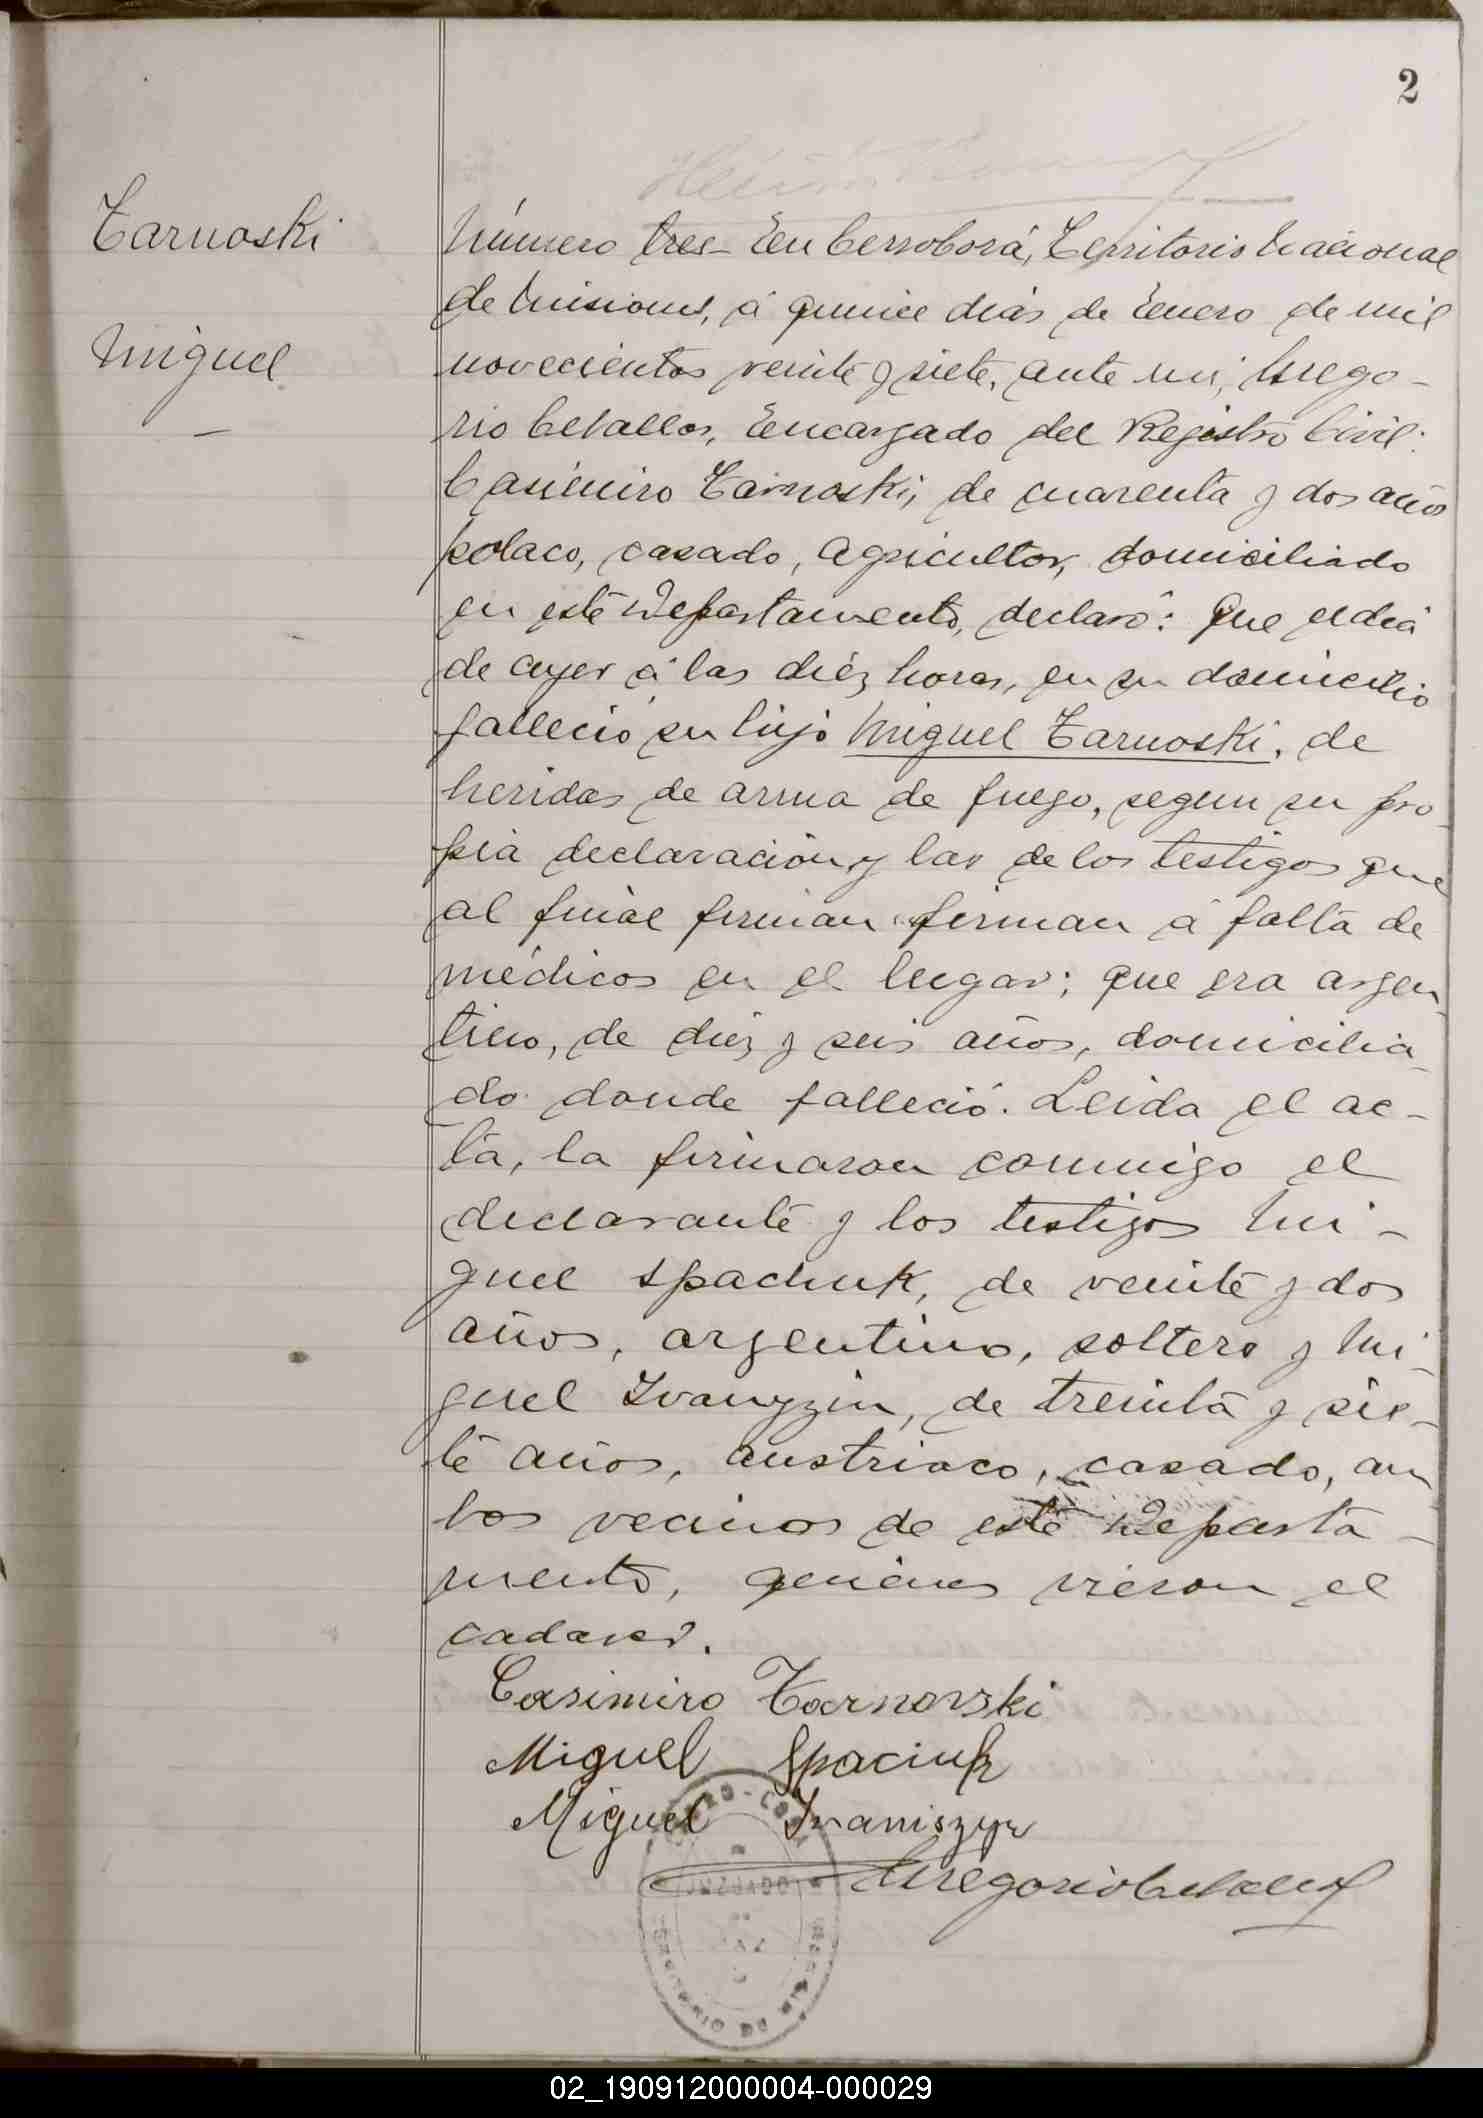 2
Tarnoski
Miguel
Número tres- En Cerro Corá, Territorio Nacional
de Misiones, á quince dias de Enero de mil
novecientos veinte y siete, ante mi, Grego-
rio Ceballos, Encargado del Registro Civil:
Casimiro Tarnoski, de cuarenta y dos años
polaco, casado, agricultor, domiciliado
en este Departamento, declaró: Que el dia
de ayer á las diéz horas, en su domicilio
falleció su hijo Miguel Tarnoski, de
heridas de arma de fuego, segun su pro-
pia declaración y las de los testigos que
al final firman firman á falta de
médicos en el lugar; que era argen-
tino, de diéz y seis años, domicilia-
do donde falleció. Leida el ac-
ta, la firmaron conmigo el
declarante y los testigos Mi-
guel Spachuk, de veinte y dos
años, argentino, soltero y Mi-
guel Ivanyzin, de treinta y sie-
te años, austriaco, casado, am-
bos vecinos de este Departa-
mento, quienes vieron el
cadaver.
Casimiro Tarnovski
Miguel Spaciuk
Miguel Iwaniszyn
Gregorio Ceballos
02_190912000004-000029